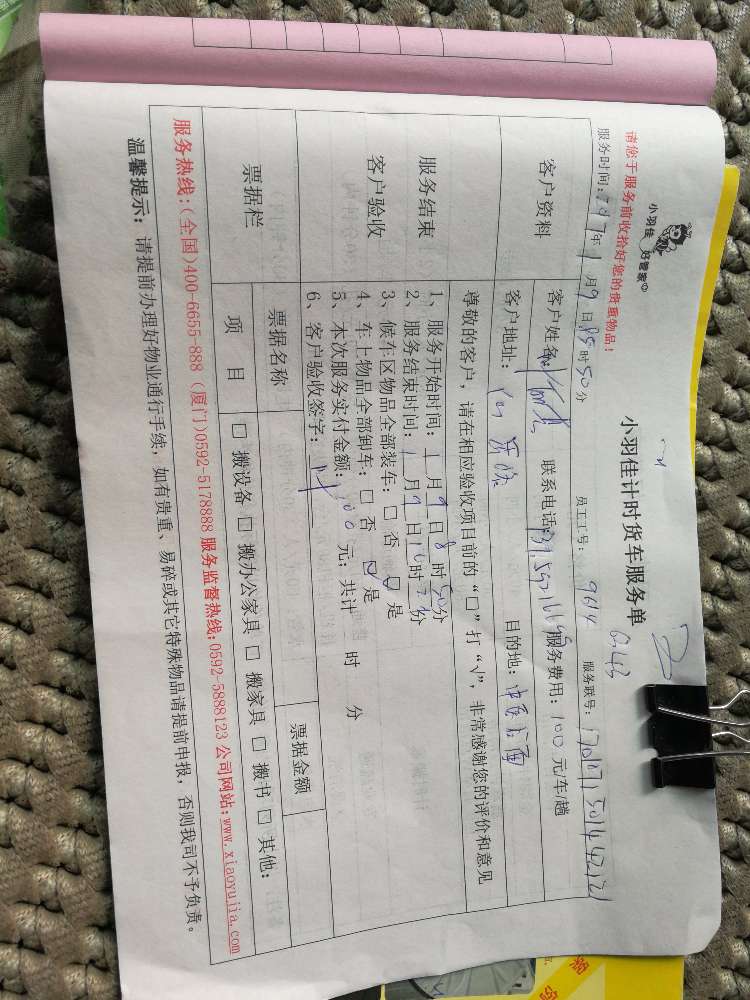 请您于服务前收拾好您的贵重物品!
小羽佳 好管家
小羽佳计时货车服务单
服务时间: 年1月9日 时50分 员工工号: 9614 6143 服务联号:
客户资料 客户姓名: 联系电话: 服务费用: 100元/车/趟
客户地址: 目的地:
服务结束
客户验收
尊敬的客户, 请在相应验收项目前的“□”打“√”, 非常感谢您的评价和意见
1、服务开始时间: 1月9日8时50分
2、服务结束时间: 1月9日 时 分
3、候车区物品全部装车: □ 否 ☑ 是
4、车上物品全部卸车: □ 否 ☑ 是
5、本次服务实付金额: 100元; 共计 时 分
6、客户验收签字:
票据栏 票据名称 票据金额
项 目 □ 搬设备 □ 搬办公家具 □ 搬家具 □ 搬书 □ 其他:
服务热线:(全国)400-6655-888 (厦门)0592-5178888 服务监督热线:0592-5888123 公司网站:www.xiaoyujia.com
温馨提示: 请提前办理好物业通行手续, 如有贵重、易碎或其它特殊物品请提前申报, 否则我司不予负责。